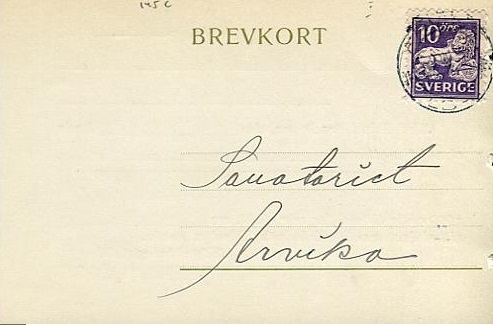 145 c
BREVKORT
10 öre
SVERIGE
Sanatoriet
Arvika